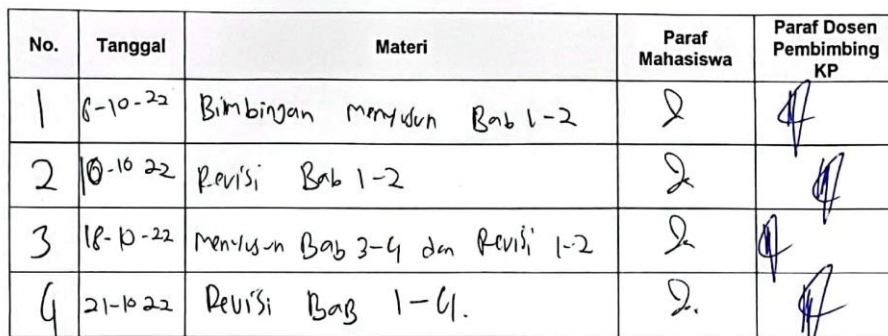 No. Tanggal Materi Paraf Mahasiswa Paraf Dosen Pembimbing KP
1 6-10-22 Bimbingan Menyusun Bab 1-2
2 10-10 22 Revisi Bab 1-2
3 18-10-22 Menyusun Bab 3-4 dan Revisi 1-2
4 21-10 22 Revisi BaB 1-4.